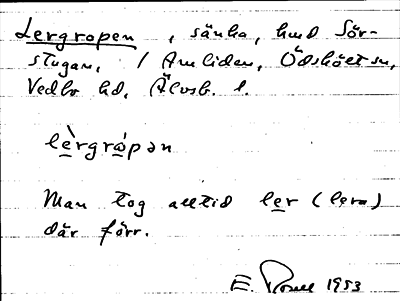 Lergropen, sänka, hmd Sör-
stugan, / Amliden, Ödsköts sn,
Vedbo hd, Älvsb. l.
lèrgrópən
Man tog alltid ler (lera)
där förr.
E. 1953